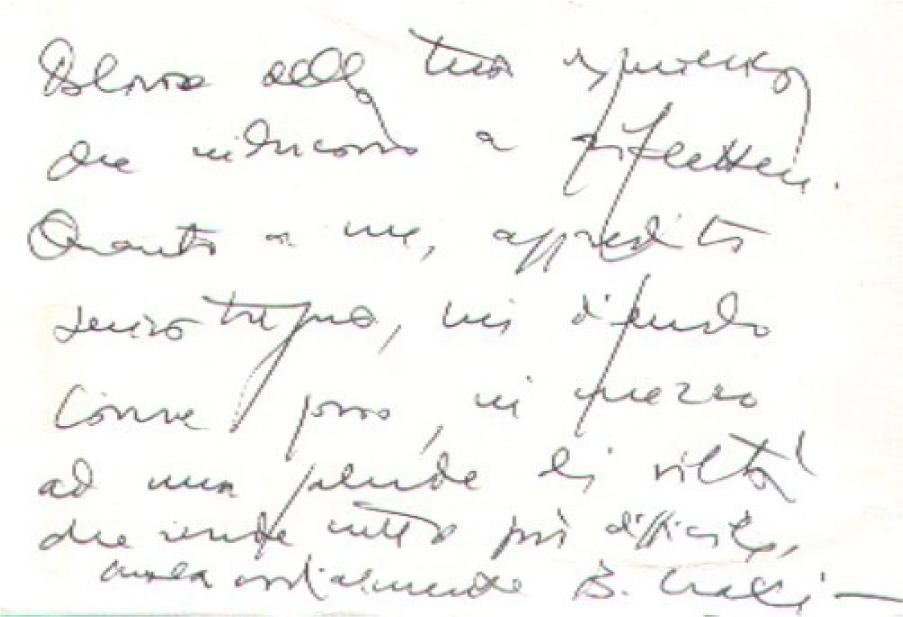 della tua
che inducono a riflettere.
Quanto a me, aggredito
senza tregua, mi difendo
come posso, in mezzo
ad una palude di viltà
che rende tutto più difficile,
cordialmente B. Craxi